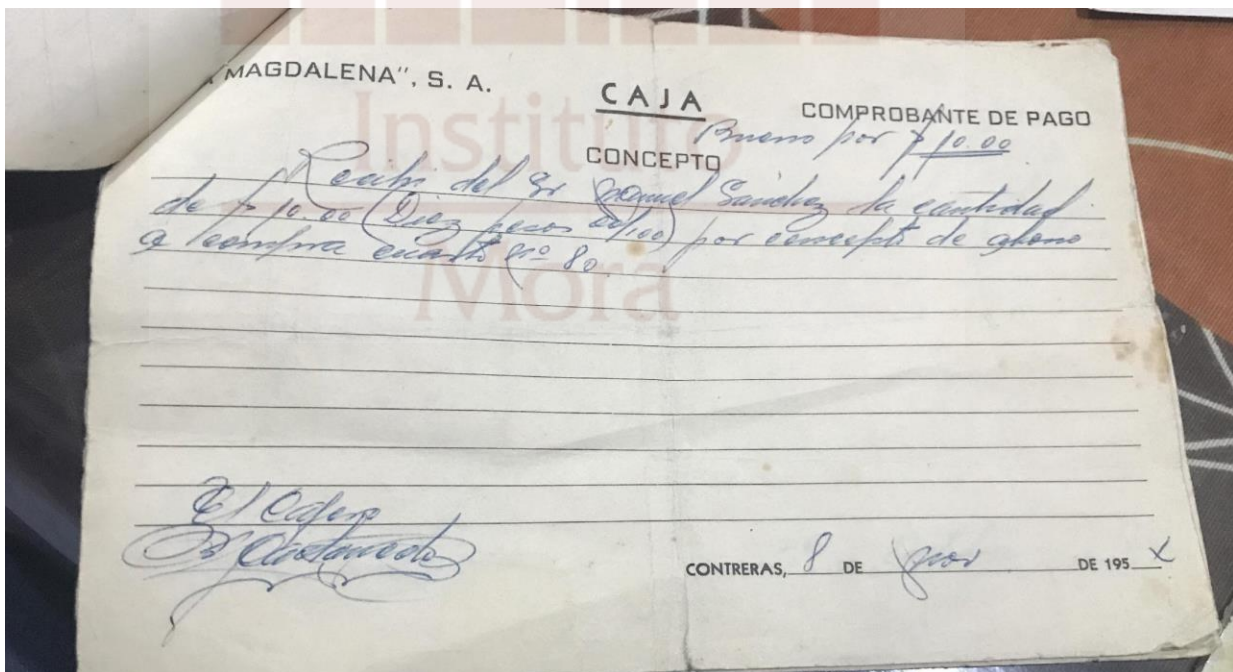 MAGDALENA", S. A.
CAJA
COMPROBANTE DE PAGO
Bueno por $ 10.00
CONCEPTO
Recibí del Sr Sánchez la cantidad
de $ 10.00 (Diez pesos 00/100) por concepto de abono
a compra cuarto Nº 80.
El Cajero
CONTRERAS, 8 DE DE 195
Instituto
Mora